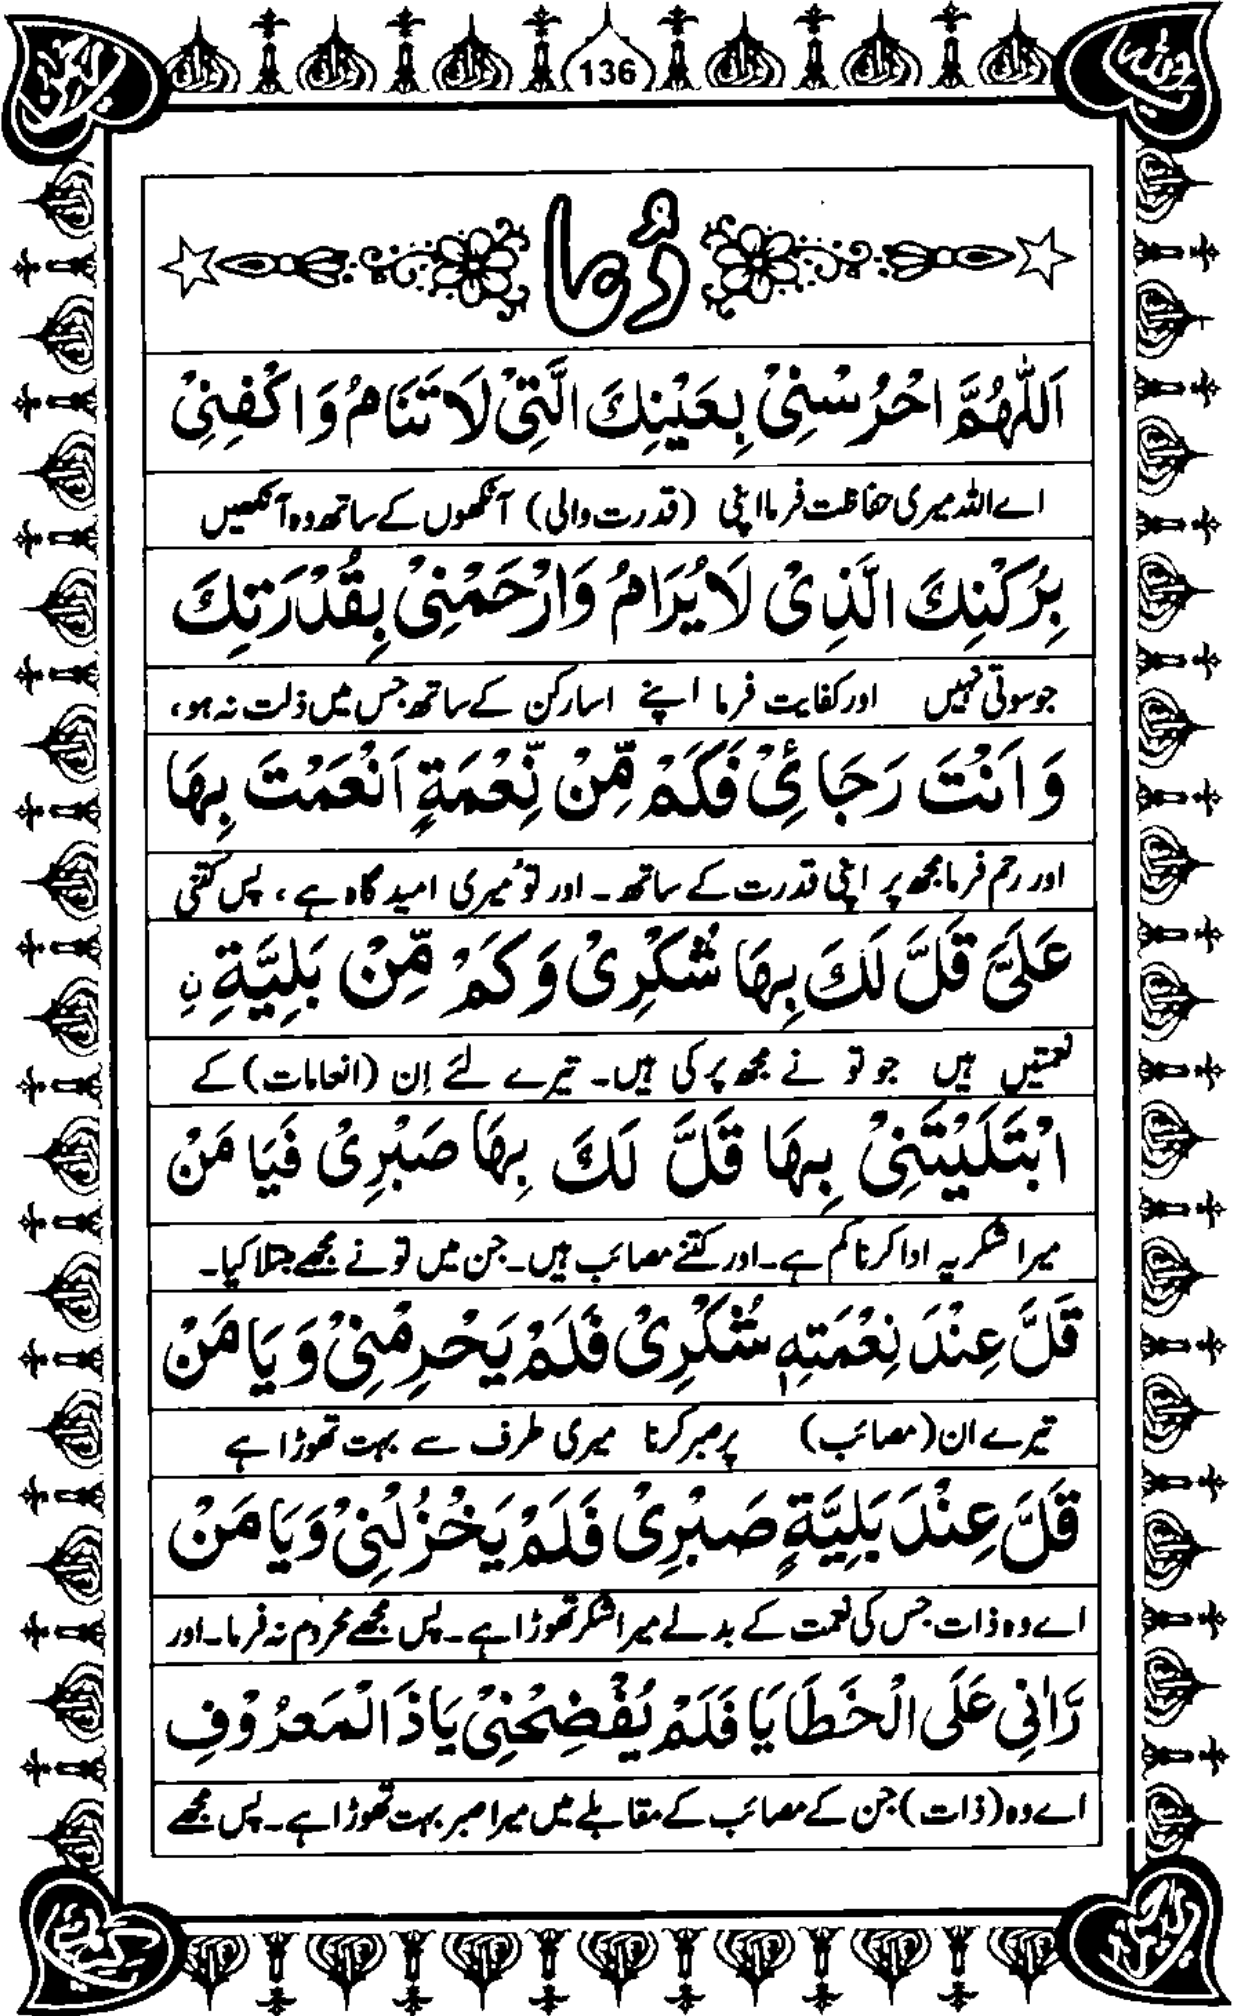 136
دُعا
اَللّٰهُمَّ احْرُسْنِیْ بِعَیْنِكَ الَّتِیْ لَا تَنَامُ وَاكْفِنِیْ
اے اللہ میری حفاظت فرما اپنی (قدرت والی) آنکھوں کے ساتھ وہ آنکھیں
بِرُكْنِكَ الَّذِیْ لَا یُرَامُ وَارْحَمْنِیْ بِقُدْرَتِكَ
جو سوتی نہیں اور کفایت فرما اپنے اسارکن کے ساتھ جس میں ذلت نہ ہو،
وَاَنْتَ رَجَائِیْ فَكَمْ مِّنْ نِّعْمَةٍ اَنْعَمْتَ بِهَا
اور رحم فرما مجھ پر اپنی قدرت کے ساتھ۔ اور تُو میری امید گاہ ہے، پس کتنی
عَلَیَّ قَلَّ لَكَ بِهَا شُكْرِیْ وَكَمْ مِّنْ بَلِیَّةِ نِ
نعمتیں ہیں جو تو نے مجھ پر کی ہیں۔ تیرے لئے اِن (انعامات) کے
ابْتَلَیْتَنِیْ بِهَا قَلَّ لَكَ بِهَا صَبْرِیْ فَیَا مَنْ
میرا شکریہ ادا کرنا کم ہے۔ اور کتنے مصائب ہیں۔ جن میں تو نے مجھے مبتلا کیا۔
قَلَّ عِنْدَ نِعْمَتِهٖ شُكْرِیْ فَلَمْ یَحْرِمْنِیْ وَیَا مَنْ
تیرے ان (مصائب) پر صبر کرنا میری طرف سے بہت تھوڑا ہے
قَلَّ عِنْدَ بَلِیَّةٍ صَبْرِیْ فَلَمْ یَخْزُلْنِیْ وَیَا مَنْ
اے وہ ذات جس کی نعمت کے بدلے میرا شکر تھوڑا ہے۔ پس مجھے محروم نہ فرما۔ اور
رَّاٰنِیْ عَلَی الْخَطَایَا فَلَمْ یُفْضِحْنِیْ یَا ذَا الْمَعْرُوْفِ
اے وہ (ذات) جن کے مصائب کے مقابلے میں میرا صبر بہت تھوڑا ہے۔ پس مجھے